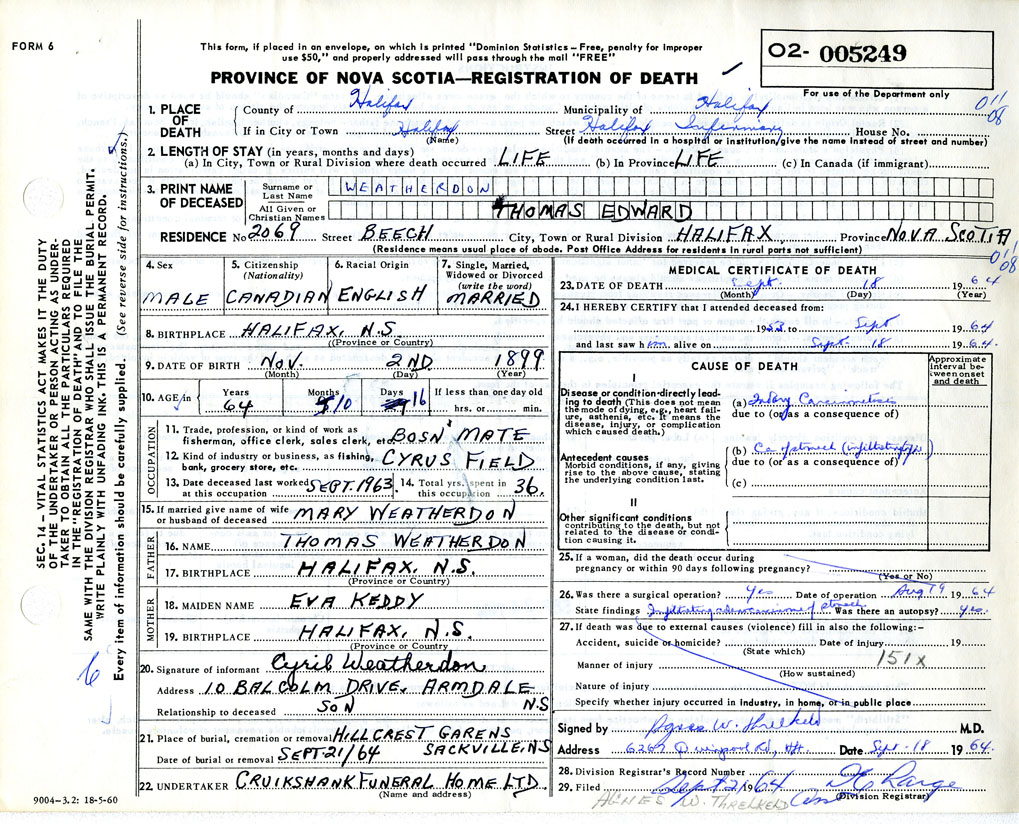 FORM 6
This form, if placed in an envelope, on which is printed "Dominion Statistics – Free, penalty for improper
use $50," and properly addressed will pass through the mail "FREE"
O2- 005249
PROVINCE OF NOVA SCOTIA—REGISTRATION OF DEATH
For use of the Department only
011
08
1. PLACE OF DEATH
County of Halifax Municipality of Halifax
If in City or Town Halifax Street Halifax Infirmary House No.
(Name) (If death occurred in a hospital or institution/give the name instead of street and number)
2. LENGTH OF STAY (in years, months and days)
(a) In City, Town or Rural Division where death occurred LIFE (b) In Province LIFE (c) In Canada (if immigrant)
3. PRINT NAME OF DECEASED
Surname or Last Name WEATHERDON
All Given or Christian Names THOMAS EDWARD
RESIDENCE No 2069 Street BEECH City, Town or Rural Division HALIFAX, Province NOVA SCOTIA
(Residence means usual place of abode. Post Office Address for residents in rural parts not sufficient)
011
08
4. Sex MALE
5. Citizenship (Nationality) CANADIAN
6. Racial Origin ENGLISH
7. Single, Married, Widowed or Divorced (write the word) MARRIED
8. BIRTHPLACE HALIFAX, N.S.
(Province or Country)
9. DATE OF BIRTH NOV. 2ND 1899
(Month) (Day) (Year)
10. AGE in Years 64 Months 10 Days 16 If less than one day old hrs. or min.
OCCUPATION
11. Trade, profession, or kind of work as fisherman, office clerk, sales clerk, etc. BOSN' MATE
12. Kind of industry or business, as fishing, bank, grocery store, etc. CYRUS FIELD
13. Date deceased last worked at this occupation SEPT. 1963.
14. Total yrs. spent in this occupation 36.
15. If married give name of wife or husband of deceased MARY WEATHERDON
FATHER
16. NAME THOMAS WEATHERDON
17. BIRTHPLACE HALIFAX, N.S.
(Province or Country)
MOTHER
18. MAIDEN NAME EVA KEDDY
19. BIRTHPLACE HALIFAX, N.S.
(Province or Country)
20. Signature of informant Cyril Weatherdon
Address 10 BALCOLM DRIVE, ARMDALE
Relationship to deceased SON N.S
21. Place of burial, cremation or removal HILLCREST GARENS
Date of burial or removal SEPT-21/64 SACKVILLE, N.S
22. UNDERTAKER CRUIKSHANK FUNERAL HOME LTD.
(Name and address)
9004–3.2: 18-5-60
MEDICAL CERTIFICATE OF DEATH
23. DATE OF DEATH Sept. 18 1964
(Month) (Day) (Year)
24. I HEREBY CERTIFY that I attended deceased from:
19 to Sept 1964
and last saw him alive on Sept. 18 1964.
CAUSE OF DEATH
Approximate interval between onset and death
I
Disease or condition directly leading to death (This does not mean the mode of dying, e.g., heart failure, asthenia, etc. It means the disease, injury, or complication which caused death.)
(a)
due to (or as a consequence of)
Antecedent causes
Morbid conditions, if any, giving rise to the above cause, stating the underlying condition last.
(b) Ca of stomach (infiltrating)
due to (or as a consequence of)
(c)
II
Other significant conditions contributing to the death, but not related to the disease or condition causing it.
25. If a woman, did the death occur during pregnancy or within 90 days following pregnancy?
(Yes or No)
26. Was there a surgical operation? Yes Date of operation Aug 19 1964
State findings of stomach Was there an autopsy? Yes.
27. If death was due to external causes (violence) fill in also the following:–
Accident, suicide or homicide? Date of injury 19
(State which)
151x
Manner of injury
(How sustained)
Nature of injury
Specify whether injury occurred in industry, in home, or in public place
Signed by Agnes W. Threlkeld M.D.
Address 6267 Quinpool Rd, Hfx. Date Sept-18 1964.
28. Division Registrar's Record Number
29. Filed Sept 21 1964
(Division Registrar)
AGNES W. THRELKELD
SEC. 14 – VITAL STATISTICS ACT MAKES IT THE DUTY
OF THE UNDERTAKER OR PERSON ACTING AS UNDER-
TAKER TO OBTAIN ALL THE PARTICULARS REQUIRED
IN THE "REGISTRATION OF DEATH" AND TO FILE THE
SAME WITH THE DIVISION REGISTRAR WHO SHALL ISSUE THE BURIAL PERMIT.
WRITE PLAINLY WITH UNFADING INK. THIS IS A PERMANENT RECORD.
Every item of information should be carefully supplied. (See reverse side for instructions.)
6